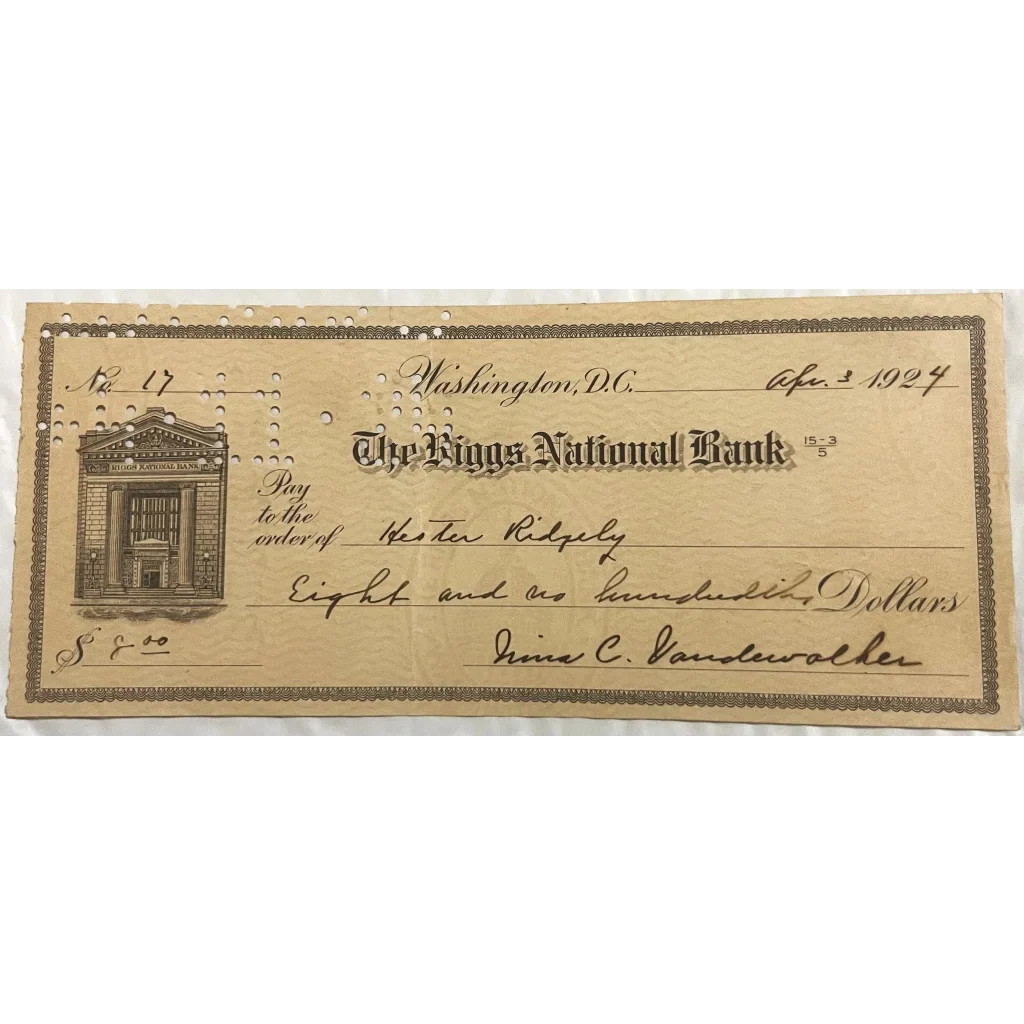 No. 17 Washington, D.C. Apr. 3 1924
RIGGS NATIONAL BANK
The Riggs National Bank 15-3/5
Pay to the order of Hester Ridgely
Eight and no hundredths Dollars
$ 8.00
Nina C. Vandewalker